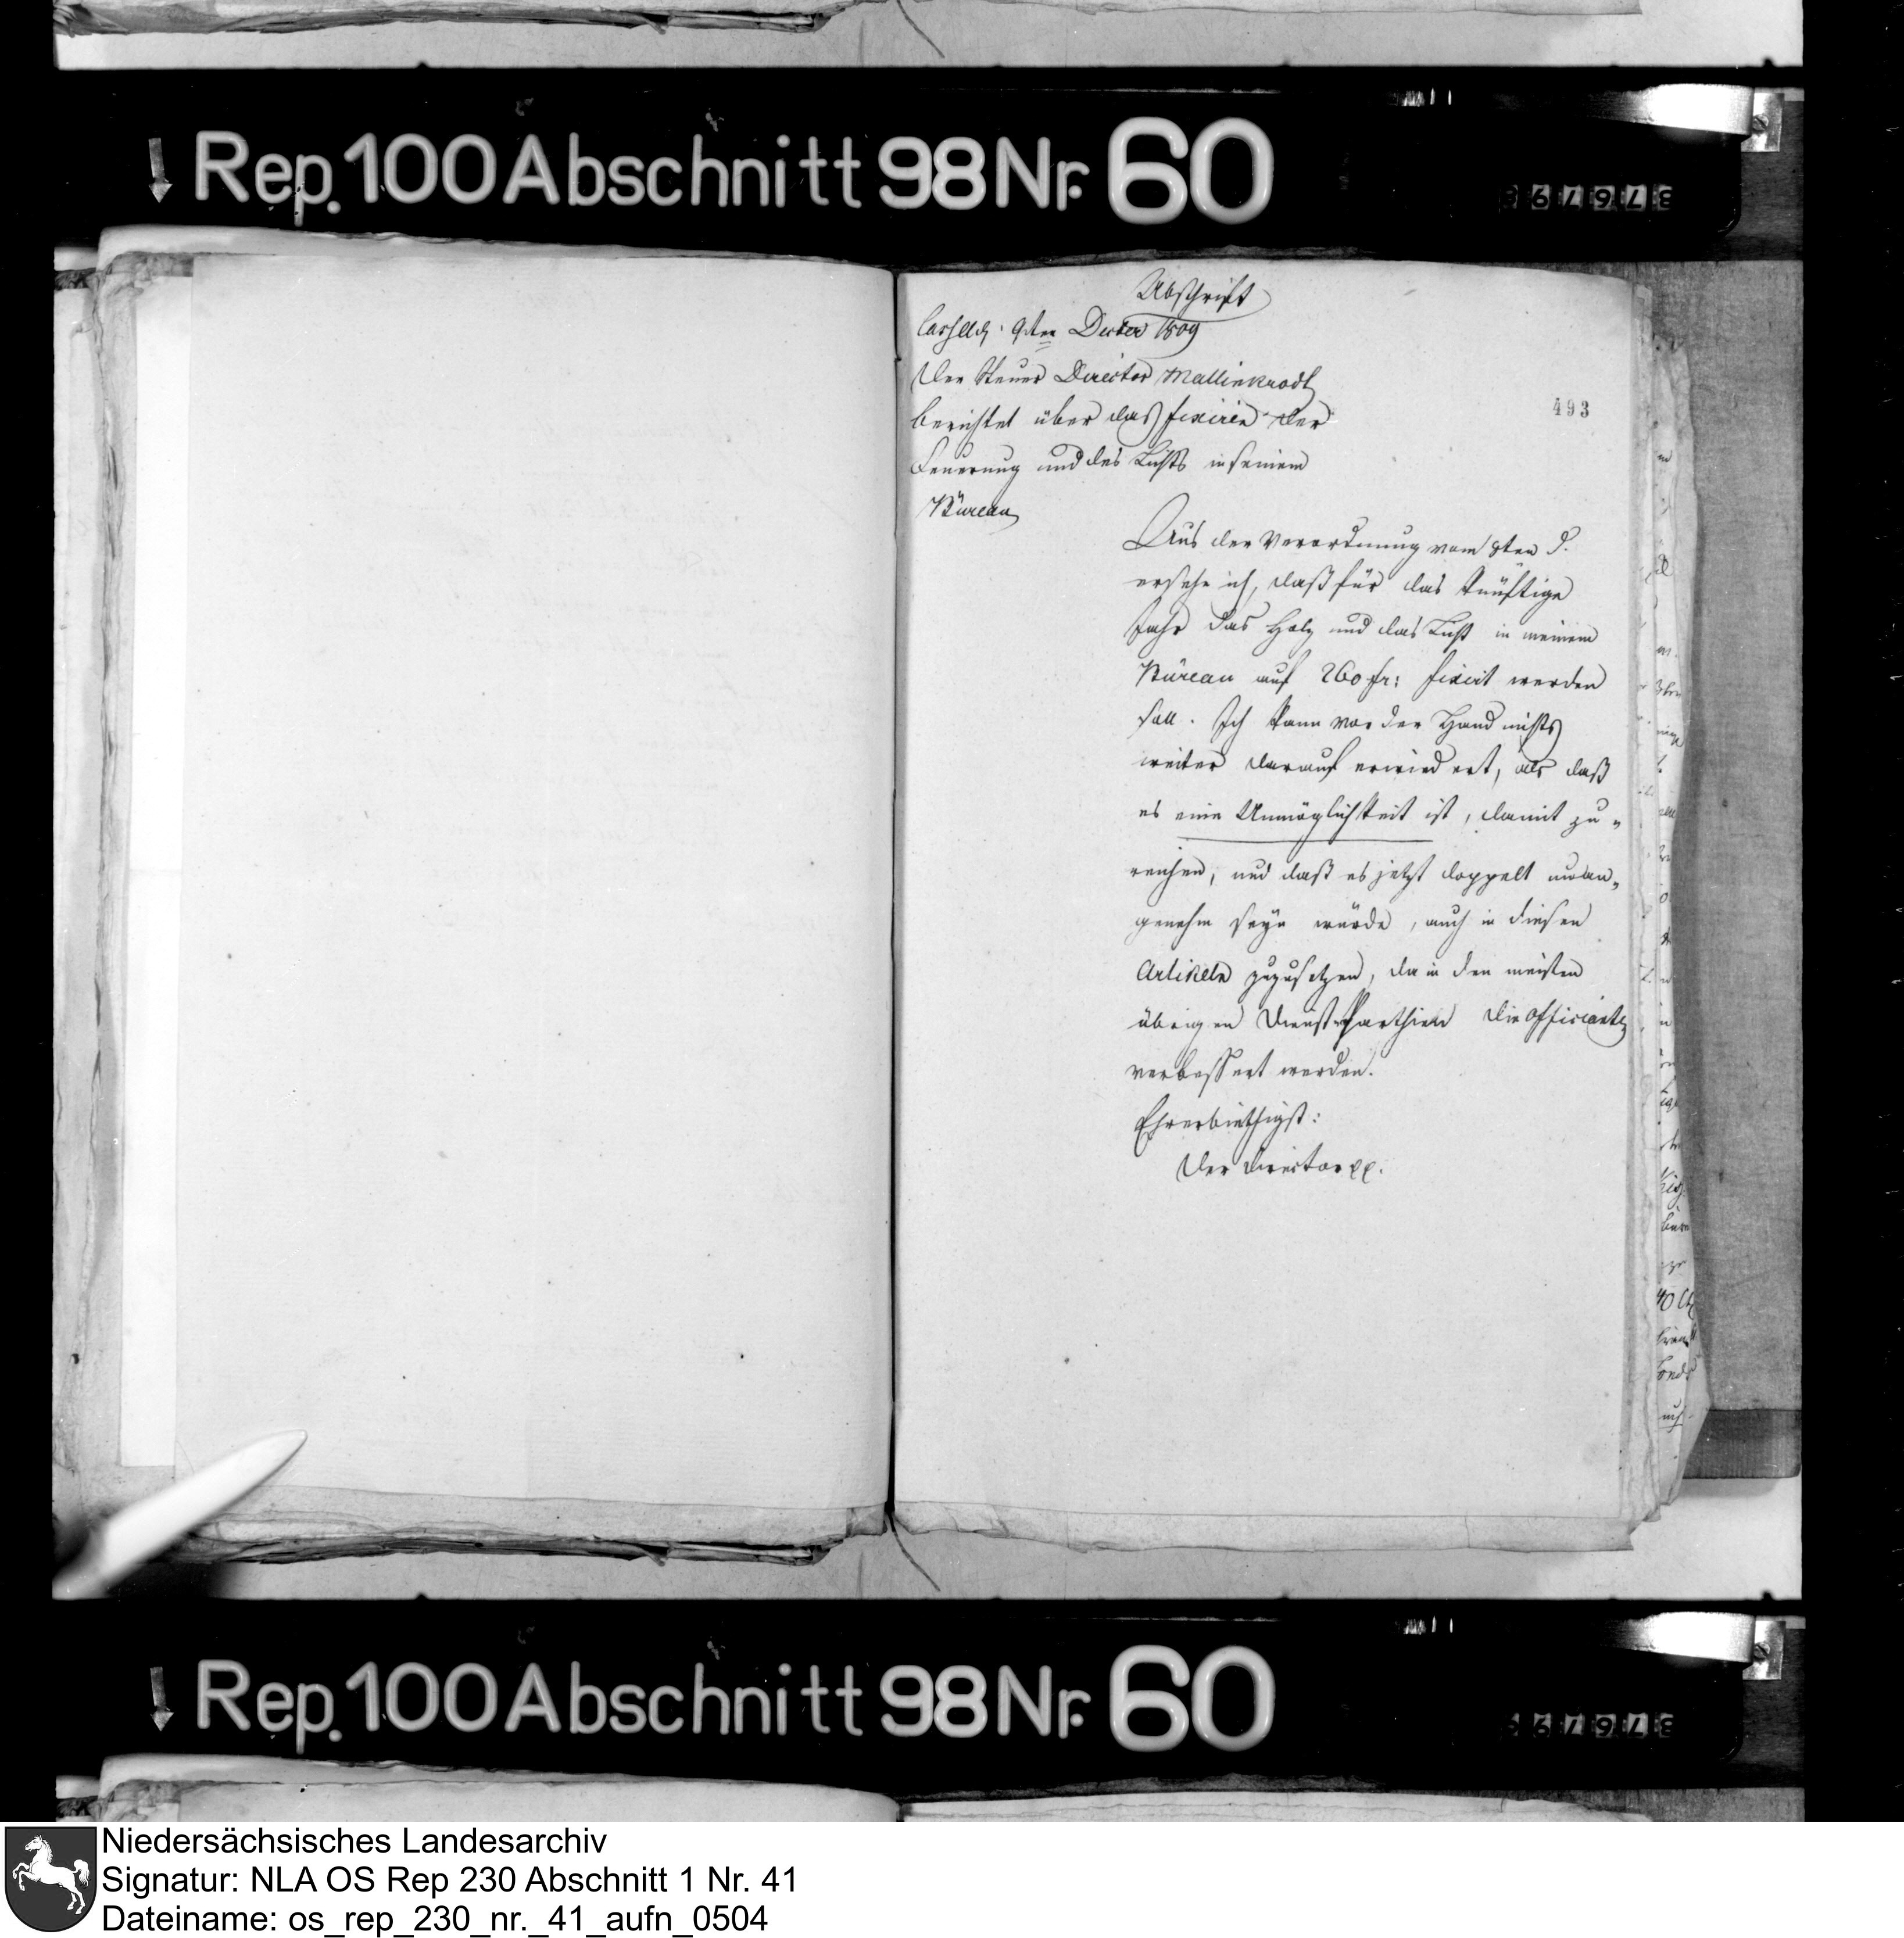 Rep. 100 Abschnitt 98 Nr. 60
Abschrift
Cassel d. 9ten Decber 1809
Der Steuer Director Mallinkrodt
berichtet über das fixiren der
Feuerung und des Lichts in seinem
Büreau
493
Aus der Verordnung vom 8ten d.
ersehe ich, daß für das künftige
Jahr das Holz und das Licht in meinem
Büreau auf 260 fr: fixirt werden
soll. Ich kann vor der Hand nichts
weiter darauf erwiedert, als daß
es eine Unmöglichkeit ist, damit zu-
reichen, und daß es jetzt doppelt unan-
genehm seyn würde, auch in diesen
Artikeln zuzusetzen, da in den meisten
übrigen Dienst Parthien die Officianten
verbessert werden.
Ehrerbiethigst:
Der Director pp.
Rep. 100 Abschnitt 98 Nr. 60
Niedersächsisches Landesarchiv
Signatur: NLA OS Rep 230 Abschnitt 1 Nr. 41
Dateiname: os_rep_230_nr._41_aufn_0504